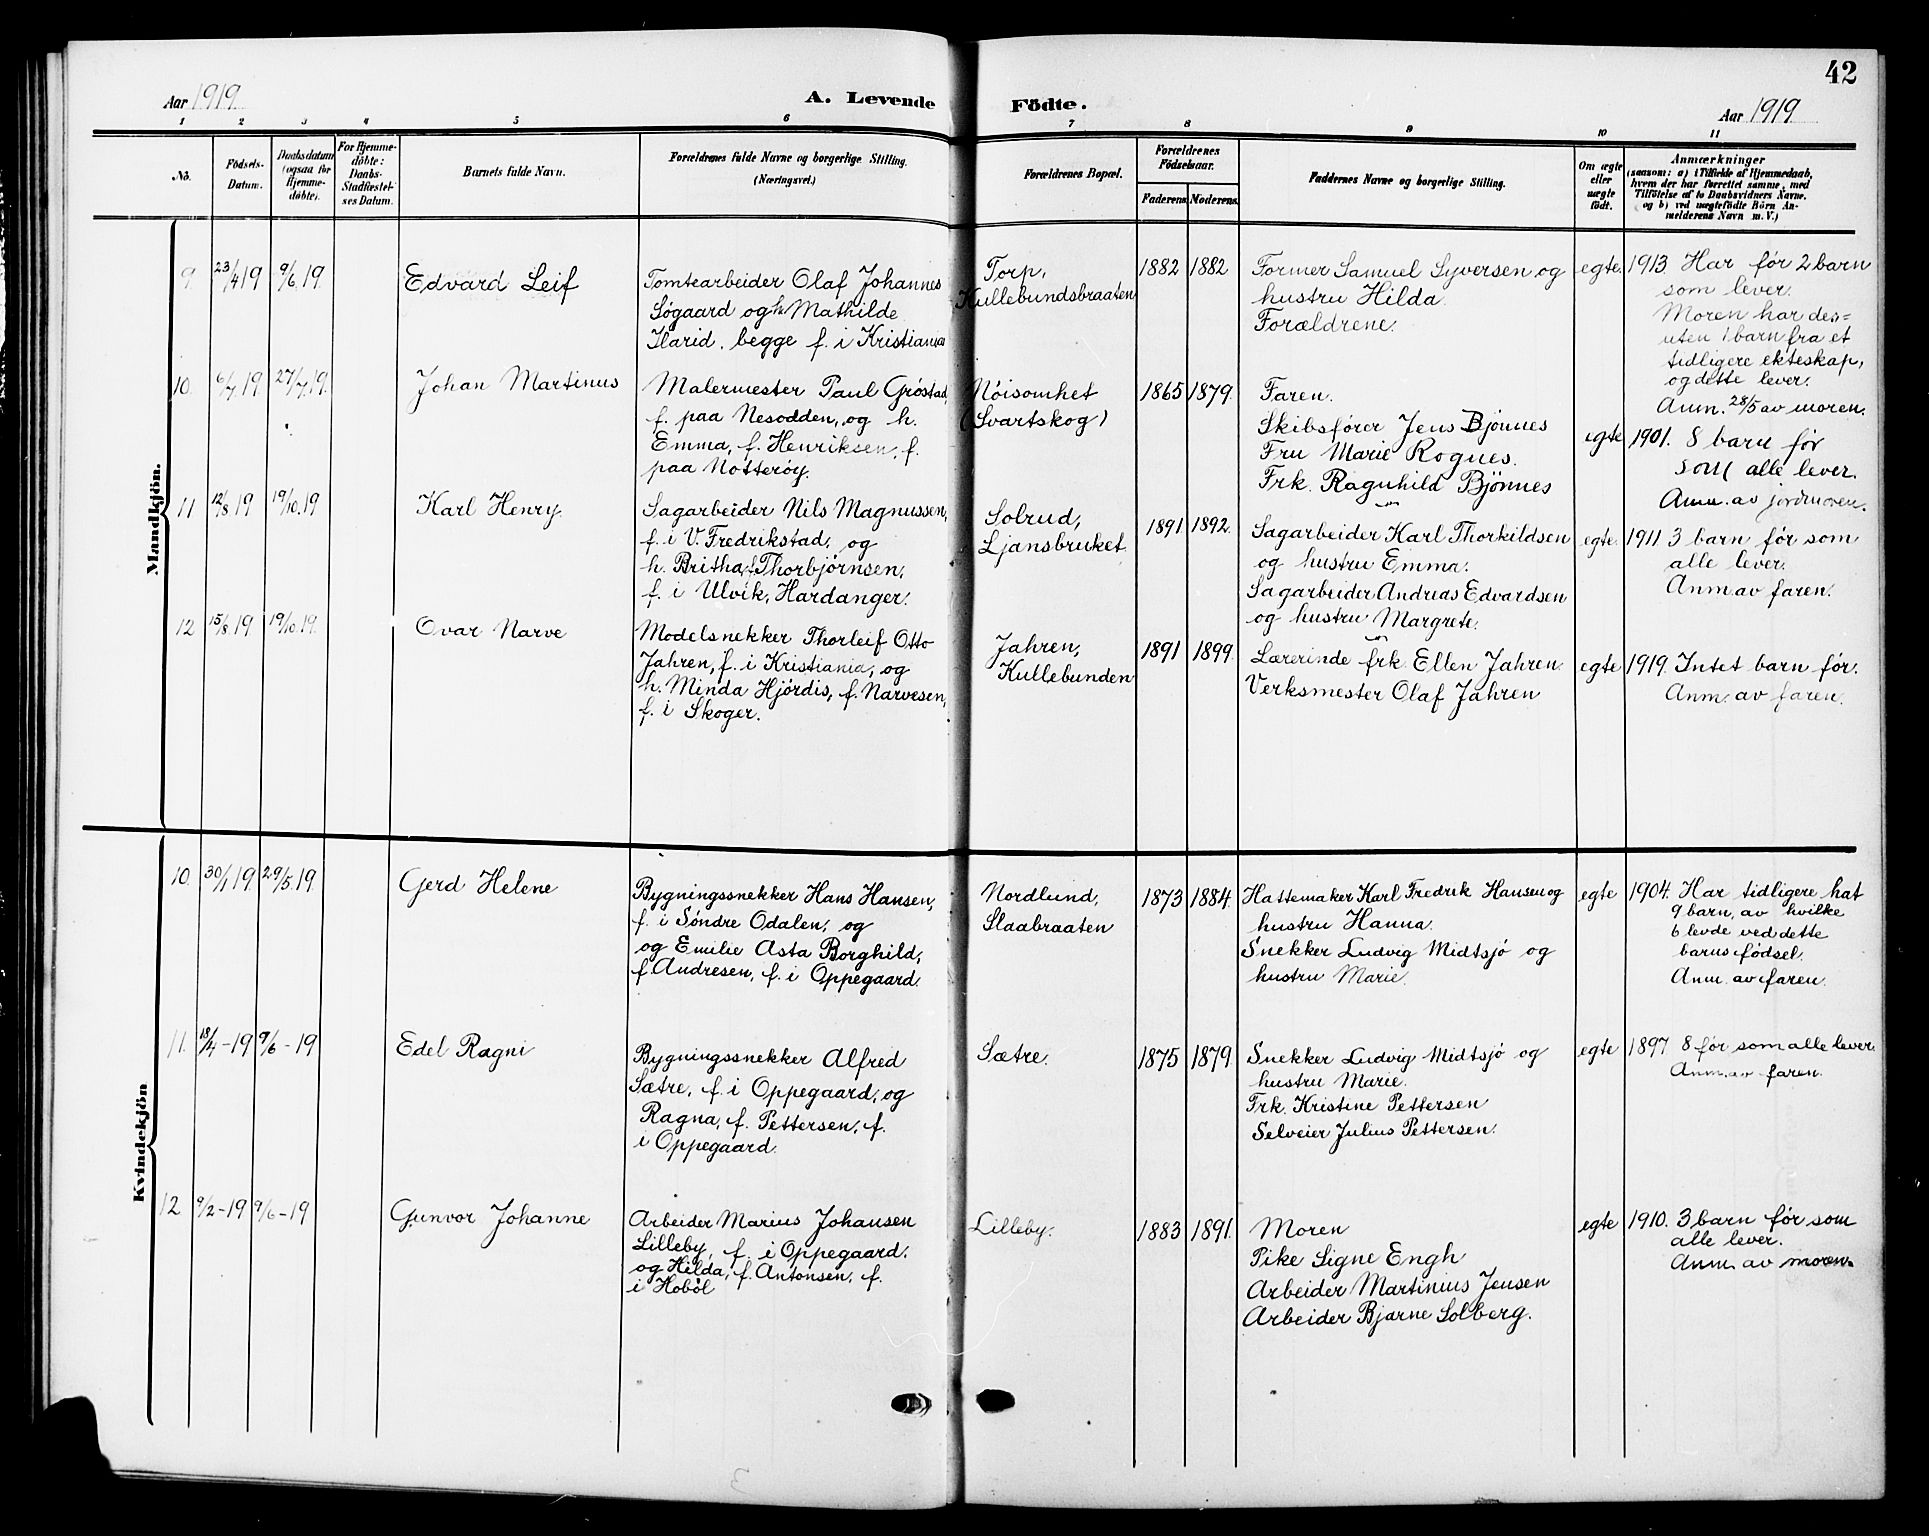 42
Aar 1919
A. Levende
Födte.
Aar 1919
1 2 3 4 5 6 7 8 9 10 11
No.
Födsels-
Datum.
Daabsdatum
(ogsaa for
Hjemme-
döbte).
For Hjemme-
döbte:
Daabs-
Stadfæstel-
ses Datum.
Barnets fulde Navn.
Forældrenes fulde Navne og borgerlige Stilling.
(Næringsvei.)
Forældrenes Bopæl.
Forældrenes
Födselsaar.
Faderens. Moderens.
Faddernes Navne og borgerlige Stilling.
Om ægte
eller
uægte
födt.
Anmærkninger
(saasom: a) i Tilfælde af Hjemmedaab,
hvem der har forrettet samme, med
Tilföielse af to Daabsvidners Navne,
og b) ved uægtefödte Börn An-
melderens Navn m. V.)
Mandkjön.
9. 23/4 19 9/6. 19.
Edvard Leif
Tomtearbeider Olaf Johannes
Søgaard og h. Mathilde
begge f. i Kristiania
Torp,
Kullebundsbraaten
1882 1882
Former Samuel Syversen og
hustru Hilda.
Forældrene.
egte.
1913. Har før 2 barn
som lever.
Moren har des=
uten 1 barn fra et
tidligere ekteskap,
og dette lever.
Anm. 28/5 av moren.
10. 6/7. 19. 27/7. 19.
Johan Martinus
Malermester Paul Grøstad,
f. paa Nesodden, og h.
Emma, f. Henriksen, f.
paa Nøtterøy.
Nöisomhet
(Svartskog)
1865 1879.
Faren.
Skibsfører Jens Bjønnes
Fru Marie Rognes.
Frk. Ragnhild Bjønnes
egte
1901. 8 barn før
som alle lever.
Anm. av jordmoren.
11 12/8 19 19/10. 19
Karl Henry.
Sagarbeider Nils Magnussen,
f. i V. Fredrikstad, og
h. Britha, f. Thorbjørnsen,
f. i Ulvik, Hardanger.
Solrud,
Ljansbruket.
1891 1892.
Sagarbeider Karl Thorkildsen
og hustru Emma.
Sagarbeider Andreas Edvardsen
og hustru Margrete.
egte.
1911 3 barn før som
alle lever.
Anm. av faren.
12 15/8. 19. 19/10. 19.
Ovar Narve
Modelsnekker Thorleif Otto
Jahren, f. i Kristiania, og
h. Minda Hjördis, f. Narvesen,
f. i Skoger.
Jahren,
Kullebunden
1891 1899.
Lærerinde frk. Ellen Jahren
Verksmester Olaf Jahren
egte
1919. Intet barn før.
Anm. av faren.
Kvindekjön
10. 30/1 19. 29/5. 19.
Gerd Helene
Bygningssnekker Hans Hansen,
f. i Söndre Odalen, og
og Emilie Asta Borghild,
f. Andresen, f. i Oppegaard.
Nordlund,
Slaabraaten
1873 1884.
Hattemaker Karl Fredrik Hansen og
hustru Hanna.
Snekker Ludvig Midtsjø og
hustru Marie.
egte
1904. Har tidligere hat
9 barn, av hvilke
6 levde ved dette
barns födsel.
Anm. av faren.
11. 18/4 - 19 9/6 - 19
Edel Ragni
Bygningssnekker Alfred
Sætre, f. i Oppegaard, og
Ragna, f. Pettersen, f.
i Oppegaard.
Sætre.
1875 1879
Snekker Ludvig Midtsjö og
hustru Marie.
Frk. Kristine Pettersen
Selveier Julius Pettersen.
egte
1897. 8 før som alle lever.
Anm. av faren.
12 9/2 - 19 9/6 - 19
Gunvor Johanne
Arbeider Marius Johansen
Lilleby, f. i Oppegaard.
og Hilda, f. Antonsen, f.
i Hoböl
Lilleby.
1883 1891.
Moren
Pike Signe Engh
Arbeider Martinius Jensen
Arbeider Bjarne Solberg.
egte
1910. 3 barn før som
alle lever.
Anm. av moren.